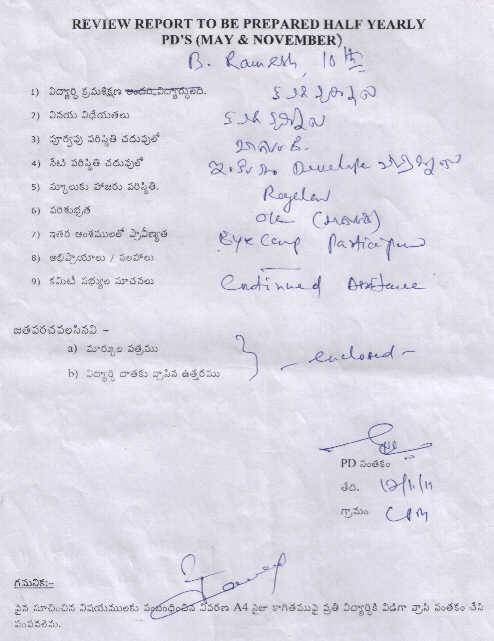 REVIEW REPORT TO BE PREPARED HALF YEARLY
PD'S (MAY & NOVEMBER)
B. Ramesh, 10th
1) విద్యార్థి క్రమశిక్షణ
2) వినయ విధేయతలు
3) పూర్వపు పరిస్థితి చదువులో
4) నేటి పరిస్థితి చదువులో Develope
5) స్కూలుకు హాజరు పరిస్థితి. Regular
6) పరిశుభ్రత
7) ఇతర అంశములలో ప్రావీణ్యత Eye Camp
8) అభిప్రాయాలు / సలహాలు —
9) కమిటీ సభ్యుల సూచనలు Continued Assistance
జతపరచవలసినవి –
a) మార్కుల పత్రము
b) విద్యార్థి దాతకు వ్రాసిన ఉత్తరము
- enclosed -
PD సంతకం
తేది. 12/11/11
గ్రామం
గమనిక:-
పైన సూచించిన విషయములకు సంబంధించిన వివరణ A4 సైజు కాగితముపై ప్రతి విద్యార్థికి విడిగా వ్రాసి సంతకం చేసి
పంపవలెను.